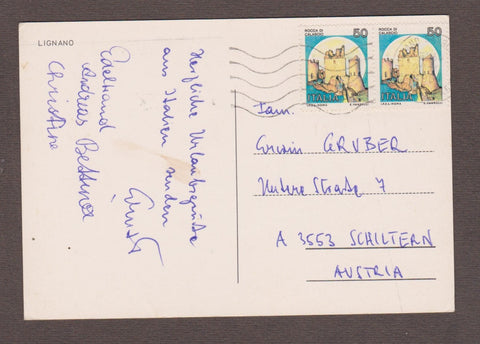 LIGNANO
Herzliche Urlaubsgrüße
aus Italien senden
Edeltraud
Andreas Bettina
Christine
ROCCA DI
CALASCIO
50
ITALIA
I.P.Z.S. ROMA
ROCCA DI
CALASCIO
50
ITALIA
I.P.Z.S. ROMA
Fam.
Erwin GRUBER
Untere Straße 7
A 3553 SCHILTERN
AUSTRIA